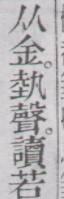 从金。埶聲。讀若